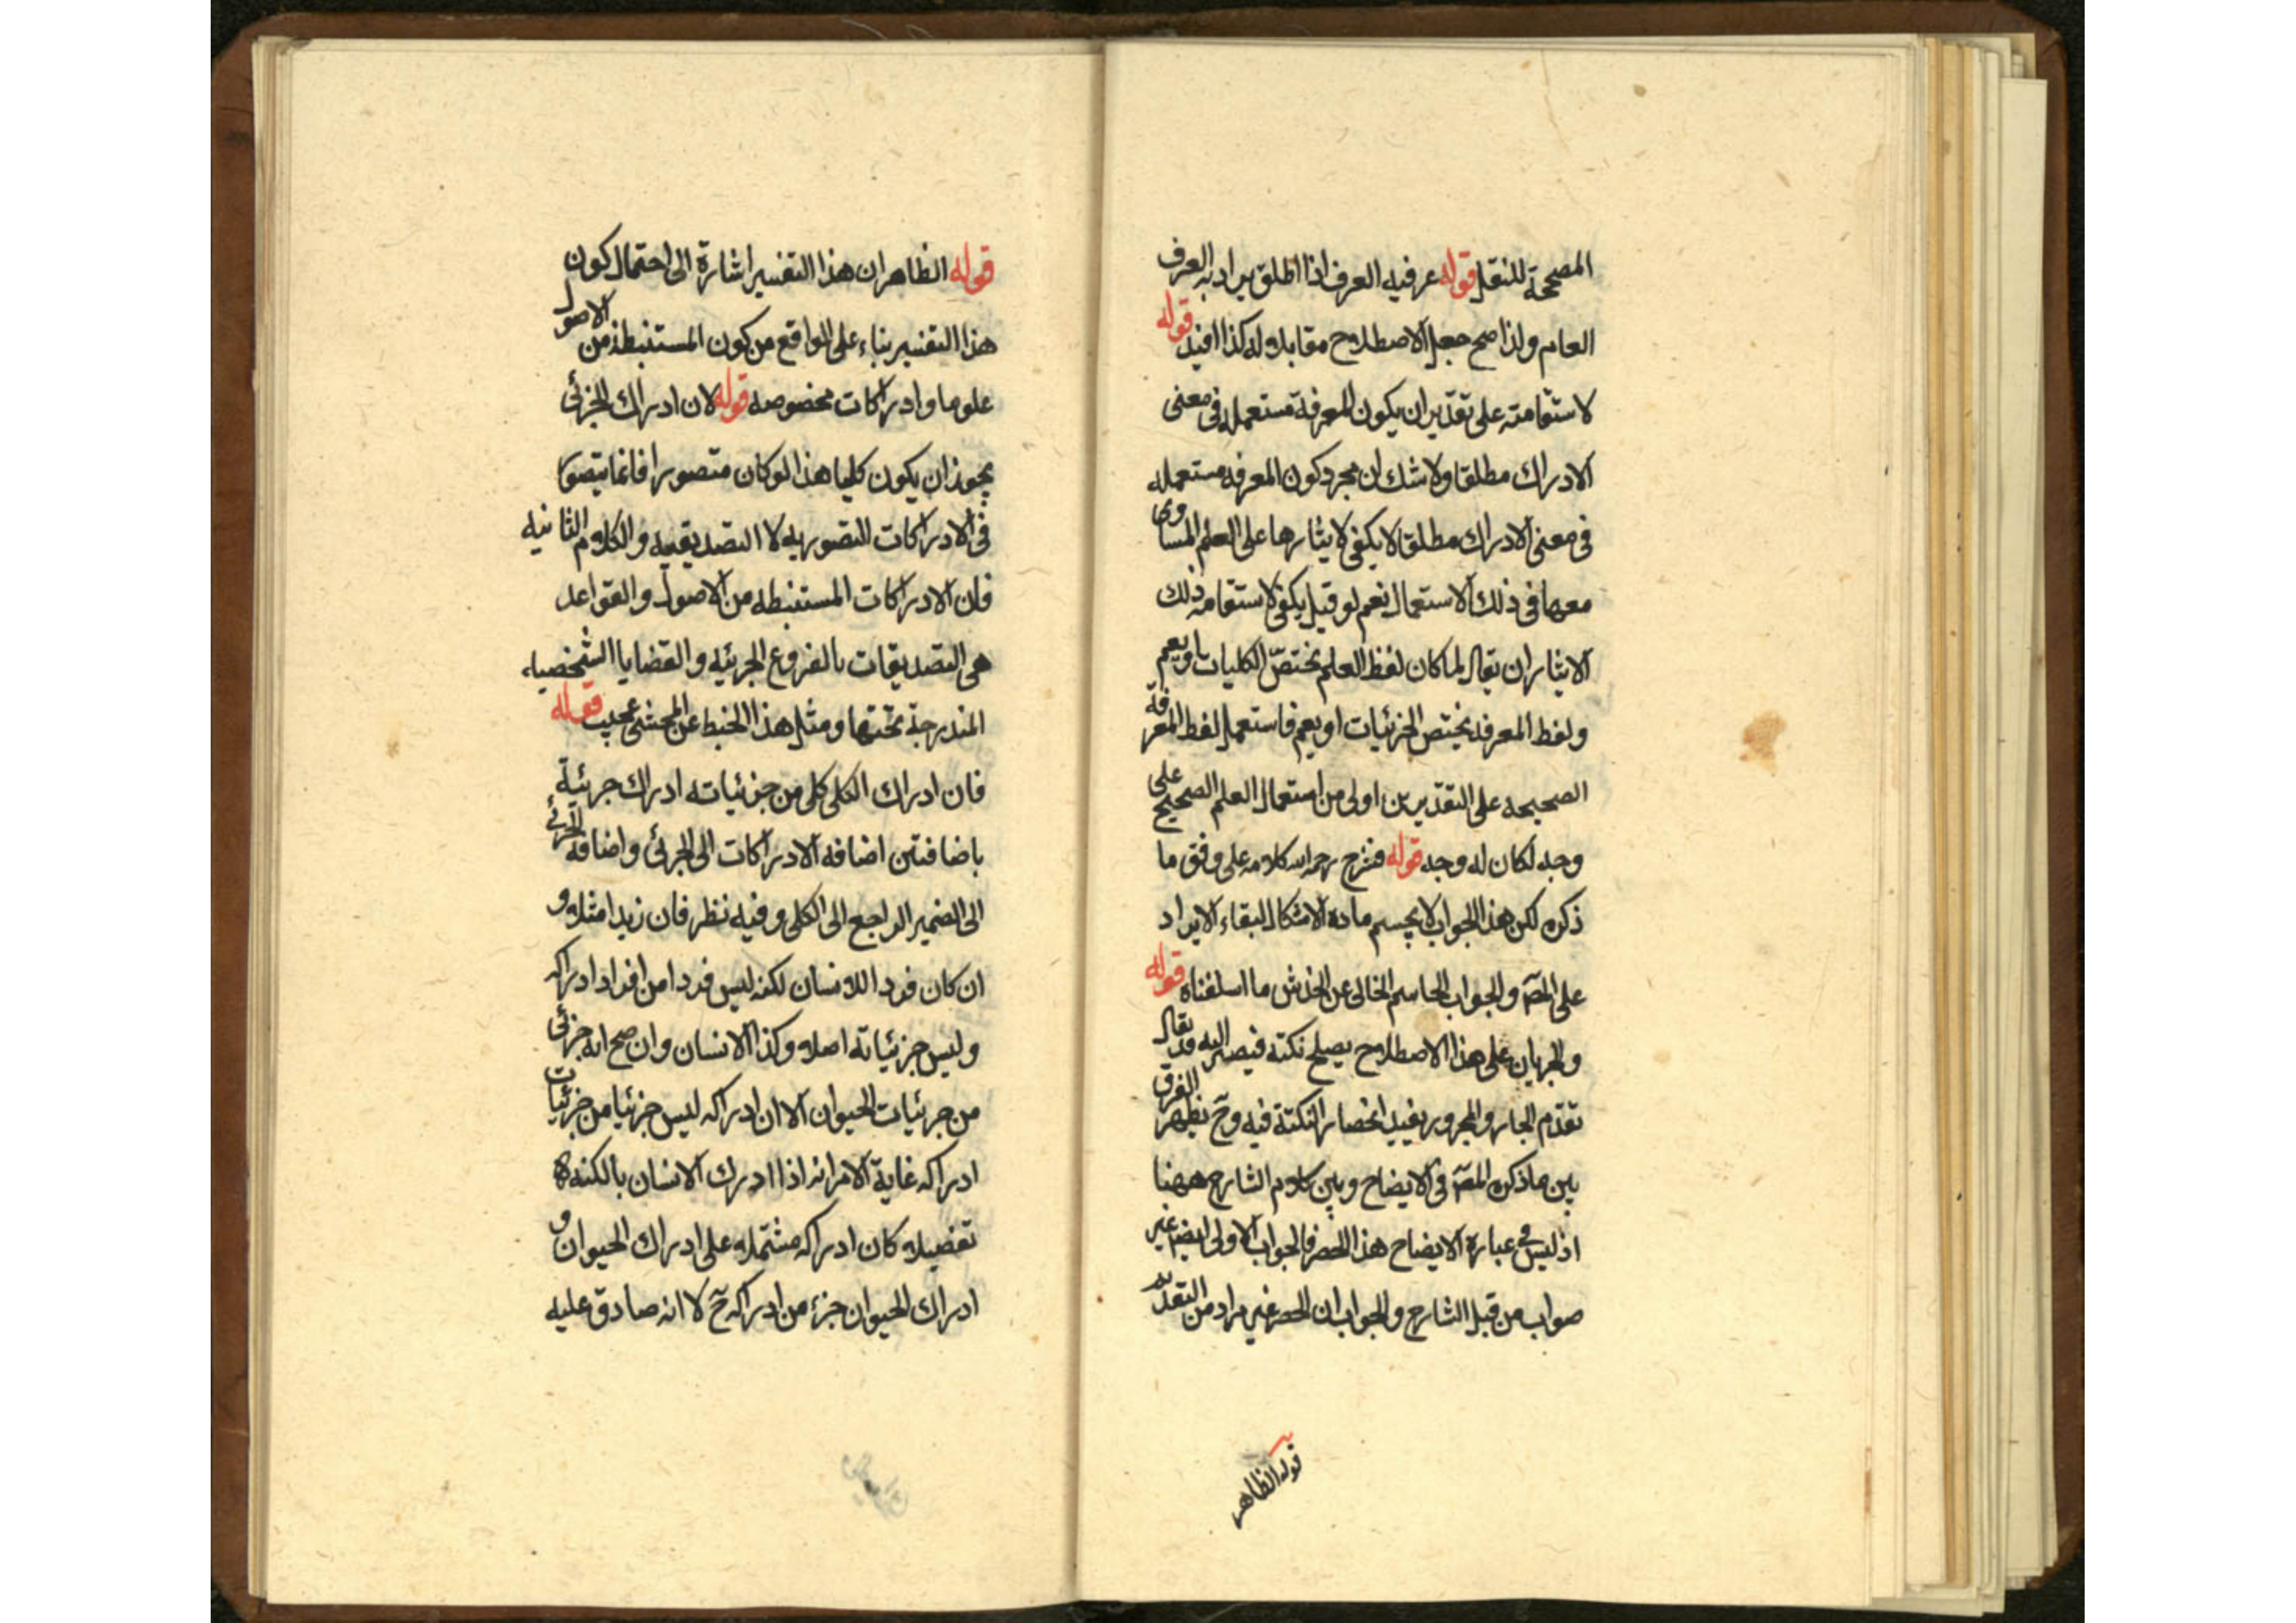 المصححة للنقل قوله عرفيه العرف اذا اطلق يراد به العرف
العام ولذا صح جعل الاصطلاح مقابلا له كذا افيد قوله
لاستقامته على تقدير ان يكون المعرفة مستعمله فى معنى
الادراك مطلقا ولا شك ان مجرد كون المعرفه مستعمله
فى معنى الادراك مطلقا لا يكفى لايثارها على العلم المساوى
معها فى ذلك الاستعمال نعم لو قيل يكفى لاستقامه ذلك
الايثار ان يقال لما كان لفظ العلم يختص الكليات او يعم
ولفظ المعرفه يختص الجزئيات او يعم فاستعمل لفظ المعرفة
الصحيحه على التقديرين اولى من استعمال العلم الصحيح على
وجه لكان له وجه قوله فشرح رحمه الله كلامه على وفق ما
ذكره لكن هذا الجواب لا يحسم مادة الاشكال لبقاء الايراد
على المص والجواب الحاسم الخالى عن الخدش ما اسلفناه قوله
والجريان على هذا الاصطلاح يصلح نكتة فيصير اليه قد يقال
تقدم الجار والمجرور يفيد انحصار النكتة فيه وح يظهر الفرق
بين ما ذكره المص فى الايضاح وبين كلام الشارح ههنا
اذ ليس فى عبارة الايضاح هذا الحصر فالجواب الاولى ايضا غير
صواب من قبل الشارح والجواب ان الحصر غير مراد من التقديم
قوله الظاهر
قوله الظاهر ان هذا التفسير اشارة الى احتمال كون
هذا التفسير بناء على الواقع من كون المستنبطة من الاصول
علوما وادراكات مخصوصه قوله لان ادراك الجزئى
يجوز ان يكون كليا هذا لو كان متصورا فانما يتصور
فى الادراكات التصوريه لا التصديقيه والكلام الثانيه
فان الادراكات المستنبطه من الاصول والقواعد
هى التصديقات بالفروع الجزئيه والقضايا الشخصيه
المندرجة تحتها ومثل هذا الخبط عن المحشى عجيب قوله
فان ادراك الكلى كلى من جزئياته ادراك جزئية
باضافتين اضافه الادراكات الى الجزئى واضافه الجزئى
الى الضمير الراجع الى الكلى وفيه نظر فان زيدا مثلا و
ان كان فردا للانسان لكنه ليس فردا من افراد ادراكه
وليس جزئياته اصلا وكذا الانسان وان صح انه جزئى
من جزئيات الحيوان الا ان ادراكه ليس جزئيا من جزئيات
ادراكه غاية الامر انه اذا ادرك الانسان بالكنه
تفصيلا كان ادراكه مشتملا على ادراك الحيوان و
ادراك الحيوان جزء من ادراكه ح لا انه صادق عليه